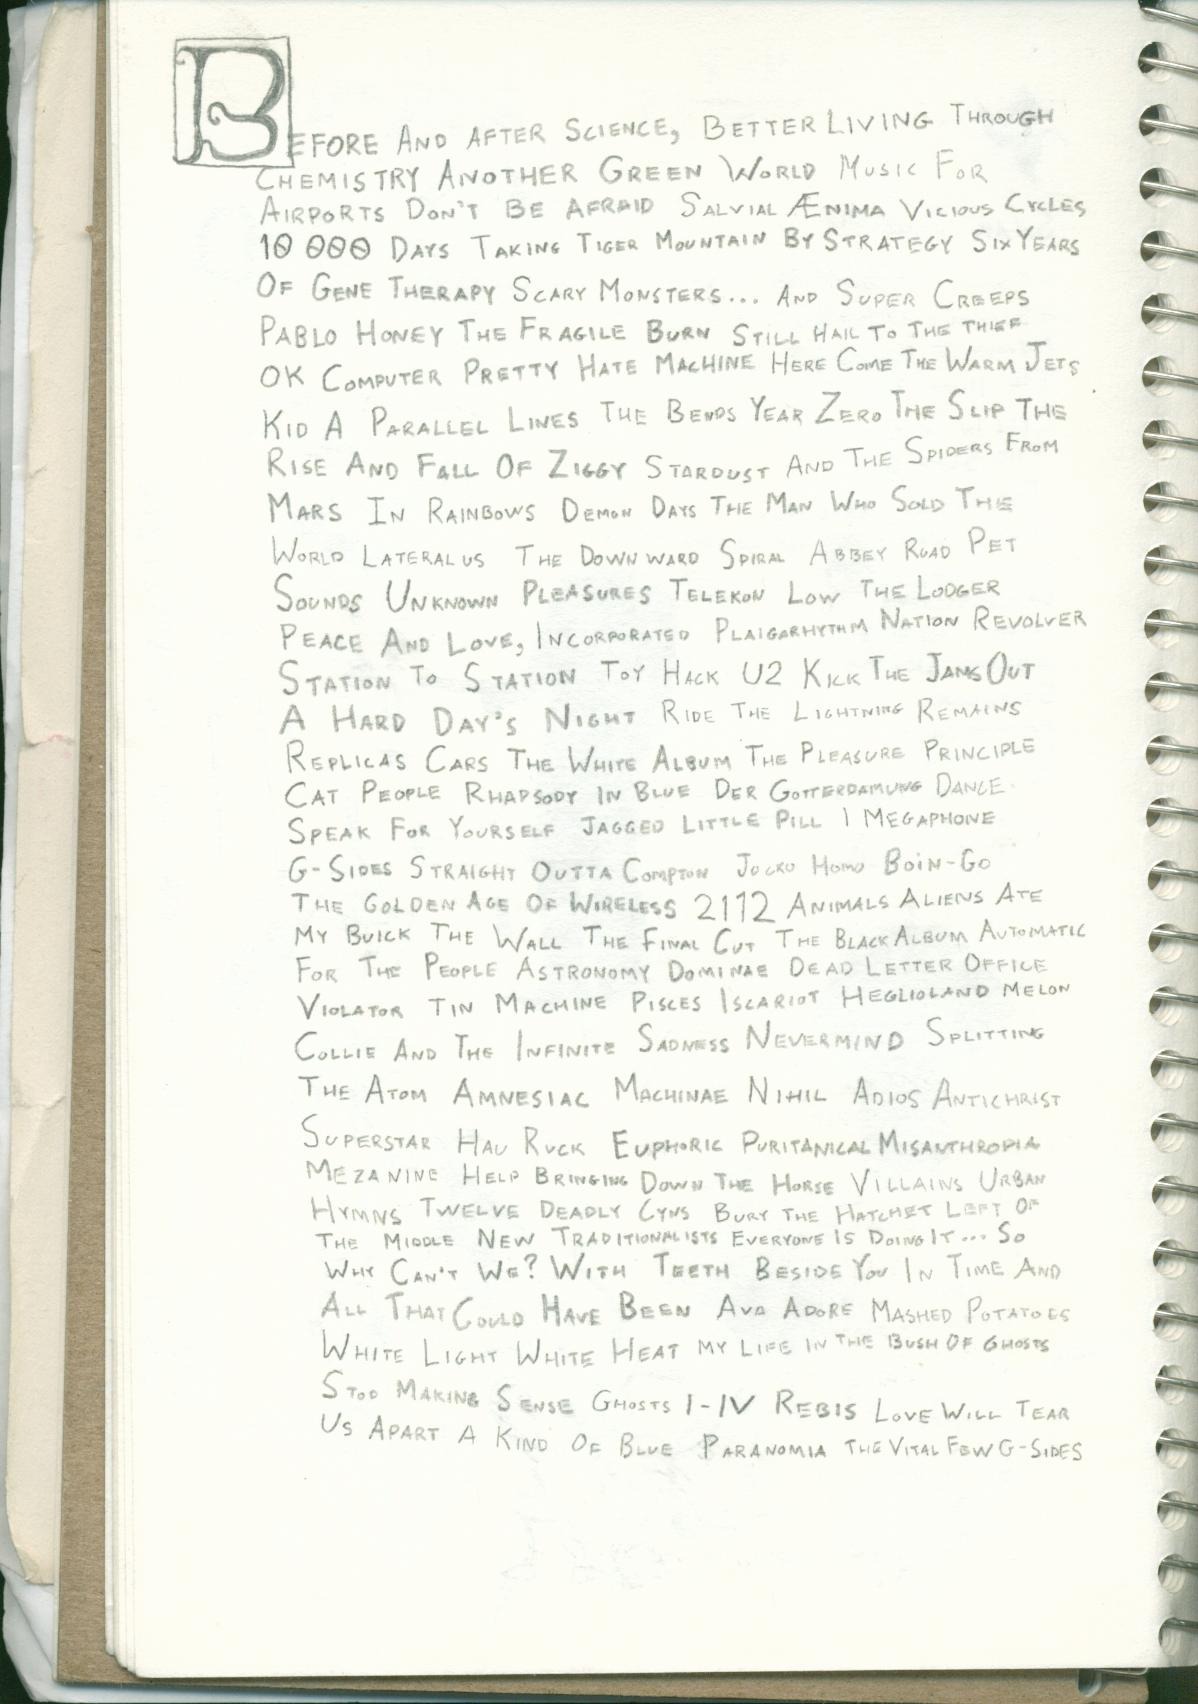 BEFORE AND AFTER SCIENCE, BETTER LIVING THROUGH
CHEMISTRY ANOTHER GREEN WORLD MUSIC FOR
AIRPORTS DON'T BE AFRAID SALVIAL ÆNIMA VICIOUS CYCLES
10 000 DAYS TAKING TIGER MOUNTAIN BY STRATEGY SIX YEARS
OF GENE THERAPY SCARY MONSTERS... AND SUPER CREEPS
PABLO HONEY THE FRAGILE BURN STILL HAIL TO THE THIEF
OK COMPUTER PRETTY HATE MACHINE HERE COME THE WARM JETS
KID A PARALLEL LINES THE BENDS YEAR ZERO THE SLIP THE
RISE AND FALL OF ZIGGY STARDUST AND THE SPIDERS FROM
MARS IN RAINBOWS DEMON DAYS THE MAN WHO SOLD THE
WORLD LATERALUS THE DOWNWARD SPIRAL ABBEY ROAD PET
SOUNDS UNKNOWN PLEASURES TELEKON LOW THE LODGER
PEACE AND LOVE, INCORPORATED PLAIGARHYTHM NATION REVOLVER
STATION TO STATION TOY HACK U2 KICK THE JAMS OUT
A HARD DAY'S NIGHT RIDE THE LIGHTNING REMAINS
REPLICAS CARS THE WHITE ALBUM THE PLEASURE PRINCIPLE
CAT PEOPLE RHAPSODY IN BLUE DER GOTTERDAMUNG DANCE
SPEAK FOR YOURSELF JAGGED LITTLE PILL I MEGAPHONE
G-SIDES STRAIGHT OUTTA COMPTON JOCKO HOMO BOIN-GO
THE GOLDEN AGE OF WIRELESS 2112 ANIMALS ALIENS ATE
MY BUICK THE WALL THE FINAL CUT THE BLACK ALBUM AUTOMATIC
FOR THE PEOPLE ASTRONOMY DOMINAE DEAD LETTER OFFICE
VIOLATOR TIN MACHINE PISCES ISCARIOT HEGLIOLAND MELON
COLLIE AND THE INFINITE SADNESS NEVERMIND SPLITTING
THE ATOM AMNESIAC MACHINAE NIHIL ADIOS ANTICHRIST
SUPERSTAR HAU RUCK EUPHORIC PURITANICAL MISANTHROPIA
MEZANINE HELP BRINGING DOWN THE HORSE VILLAINS URBAN
HYMNS TWELVE DEADLY CYNS BURY THE HATCHET LEFT OF
THE MIDDLE NEW TRADITIONALISTS EVERYONE IS DOING IT... SO
WHY CAN'T WE? WITH TEETH BESIDE YOU IN TIME AND
ALL THAT COULD HAVE BEEN AVA ADORE MASHED POTATOES
WHITE LIGHT WHITE HEAT MY LIFE IN THE BUSH OF GHOSTS
STOP MAKING SENSE GHOSTS I-IV REBIS LOVE WILL TEAR
US APART A KIND OF BLUE PARANOMIA THE VITAL FEW G-SIDES